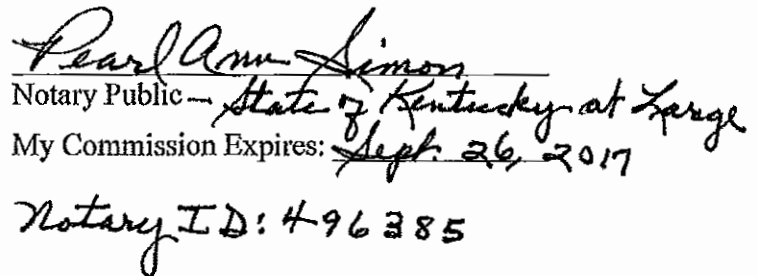 Pearl Ann Simon
Notary Public – State of Kentucky at Large
My Commission Expires: Sept. 26, 2017
Notary ID: 496385